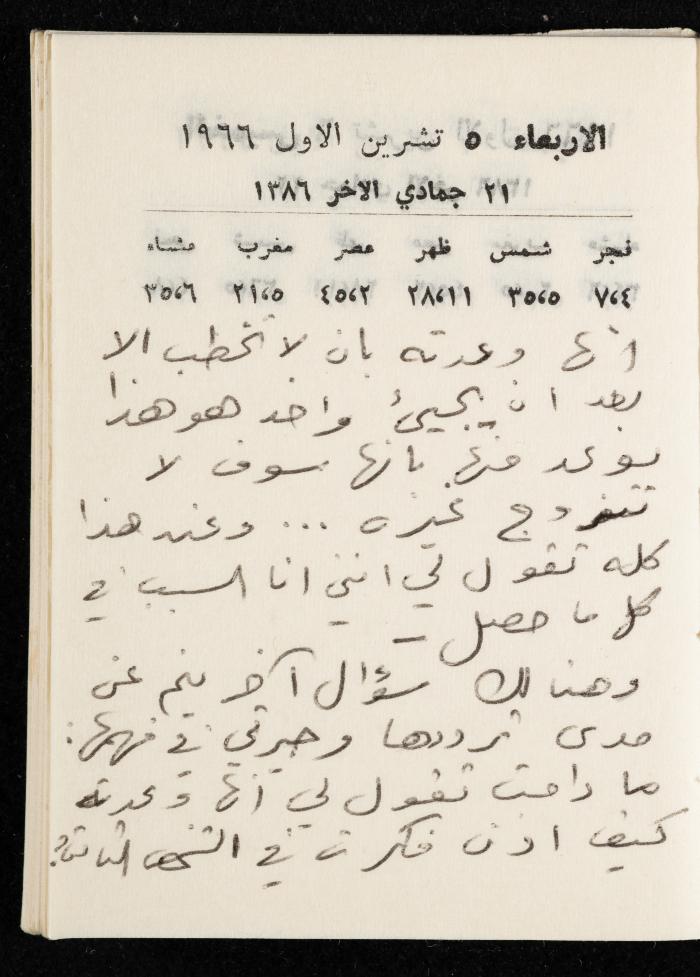 الاربعاء ٥ تشرين الاول ١٩٦٦
٢١ جمادي الاخر ١٣٨٦
فجر شمس ظهر عصر مغرب عشاء
٧،٤ ٣٥،٥ ٢٨،١١ ٤٥،٢ ٢١،٥ ٣٥،٦
انها وعدته بان لا تخطب الا
بعد ان يجيئ واخذ هو هذا
بوعد منها بانها سوف لا
تتزوج غيره ... وعند هذا
كله تقول لي انني انا السبب في
كل ما حصل –
وهنالك سؤال آخر ينم عن
مدى ترددها وحيرتي في فهمها:
ما دامت تقول لي انها وعدته
كيف اذن فكرت في الشخص الثاني؟